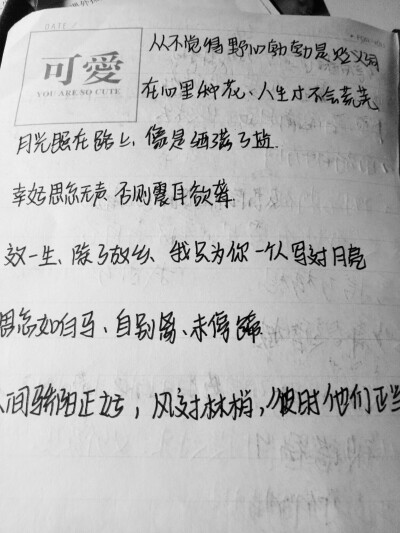 DATE /
可愛
YOU ARE SO CUTE
从不觉得野心勃勃是贬义词
在心里种花、人生才不会荒芜
月光照在路上、像是洒满了盐
幸好思念无声 否则震耳欲聋
这一生、除了故乡、我只为你一个人写过月亮
思念如白马、自别离、未停蹄
人间骄阳正好，风过林梢，彼时他们正当